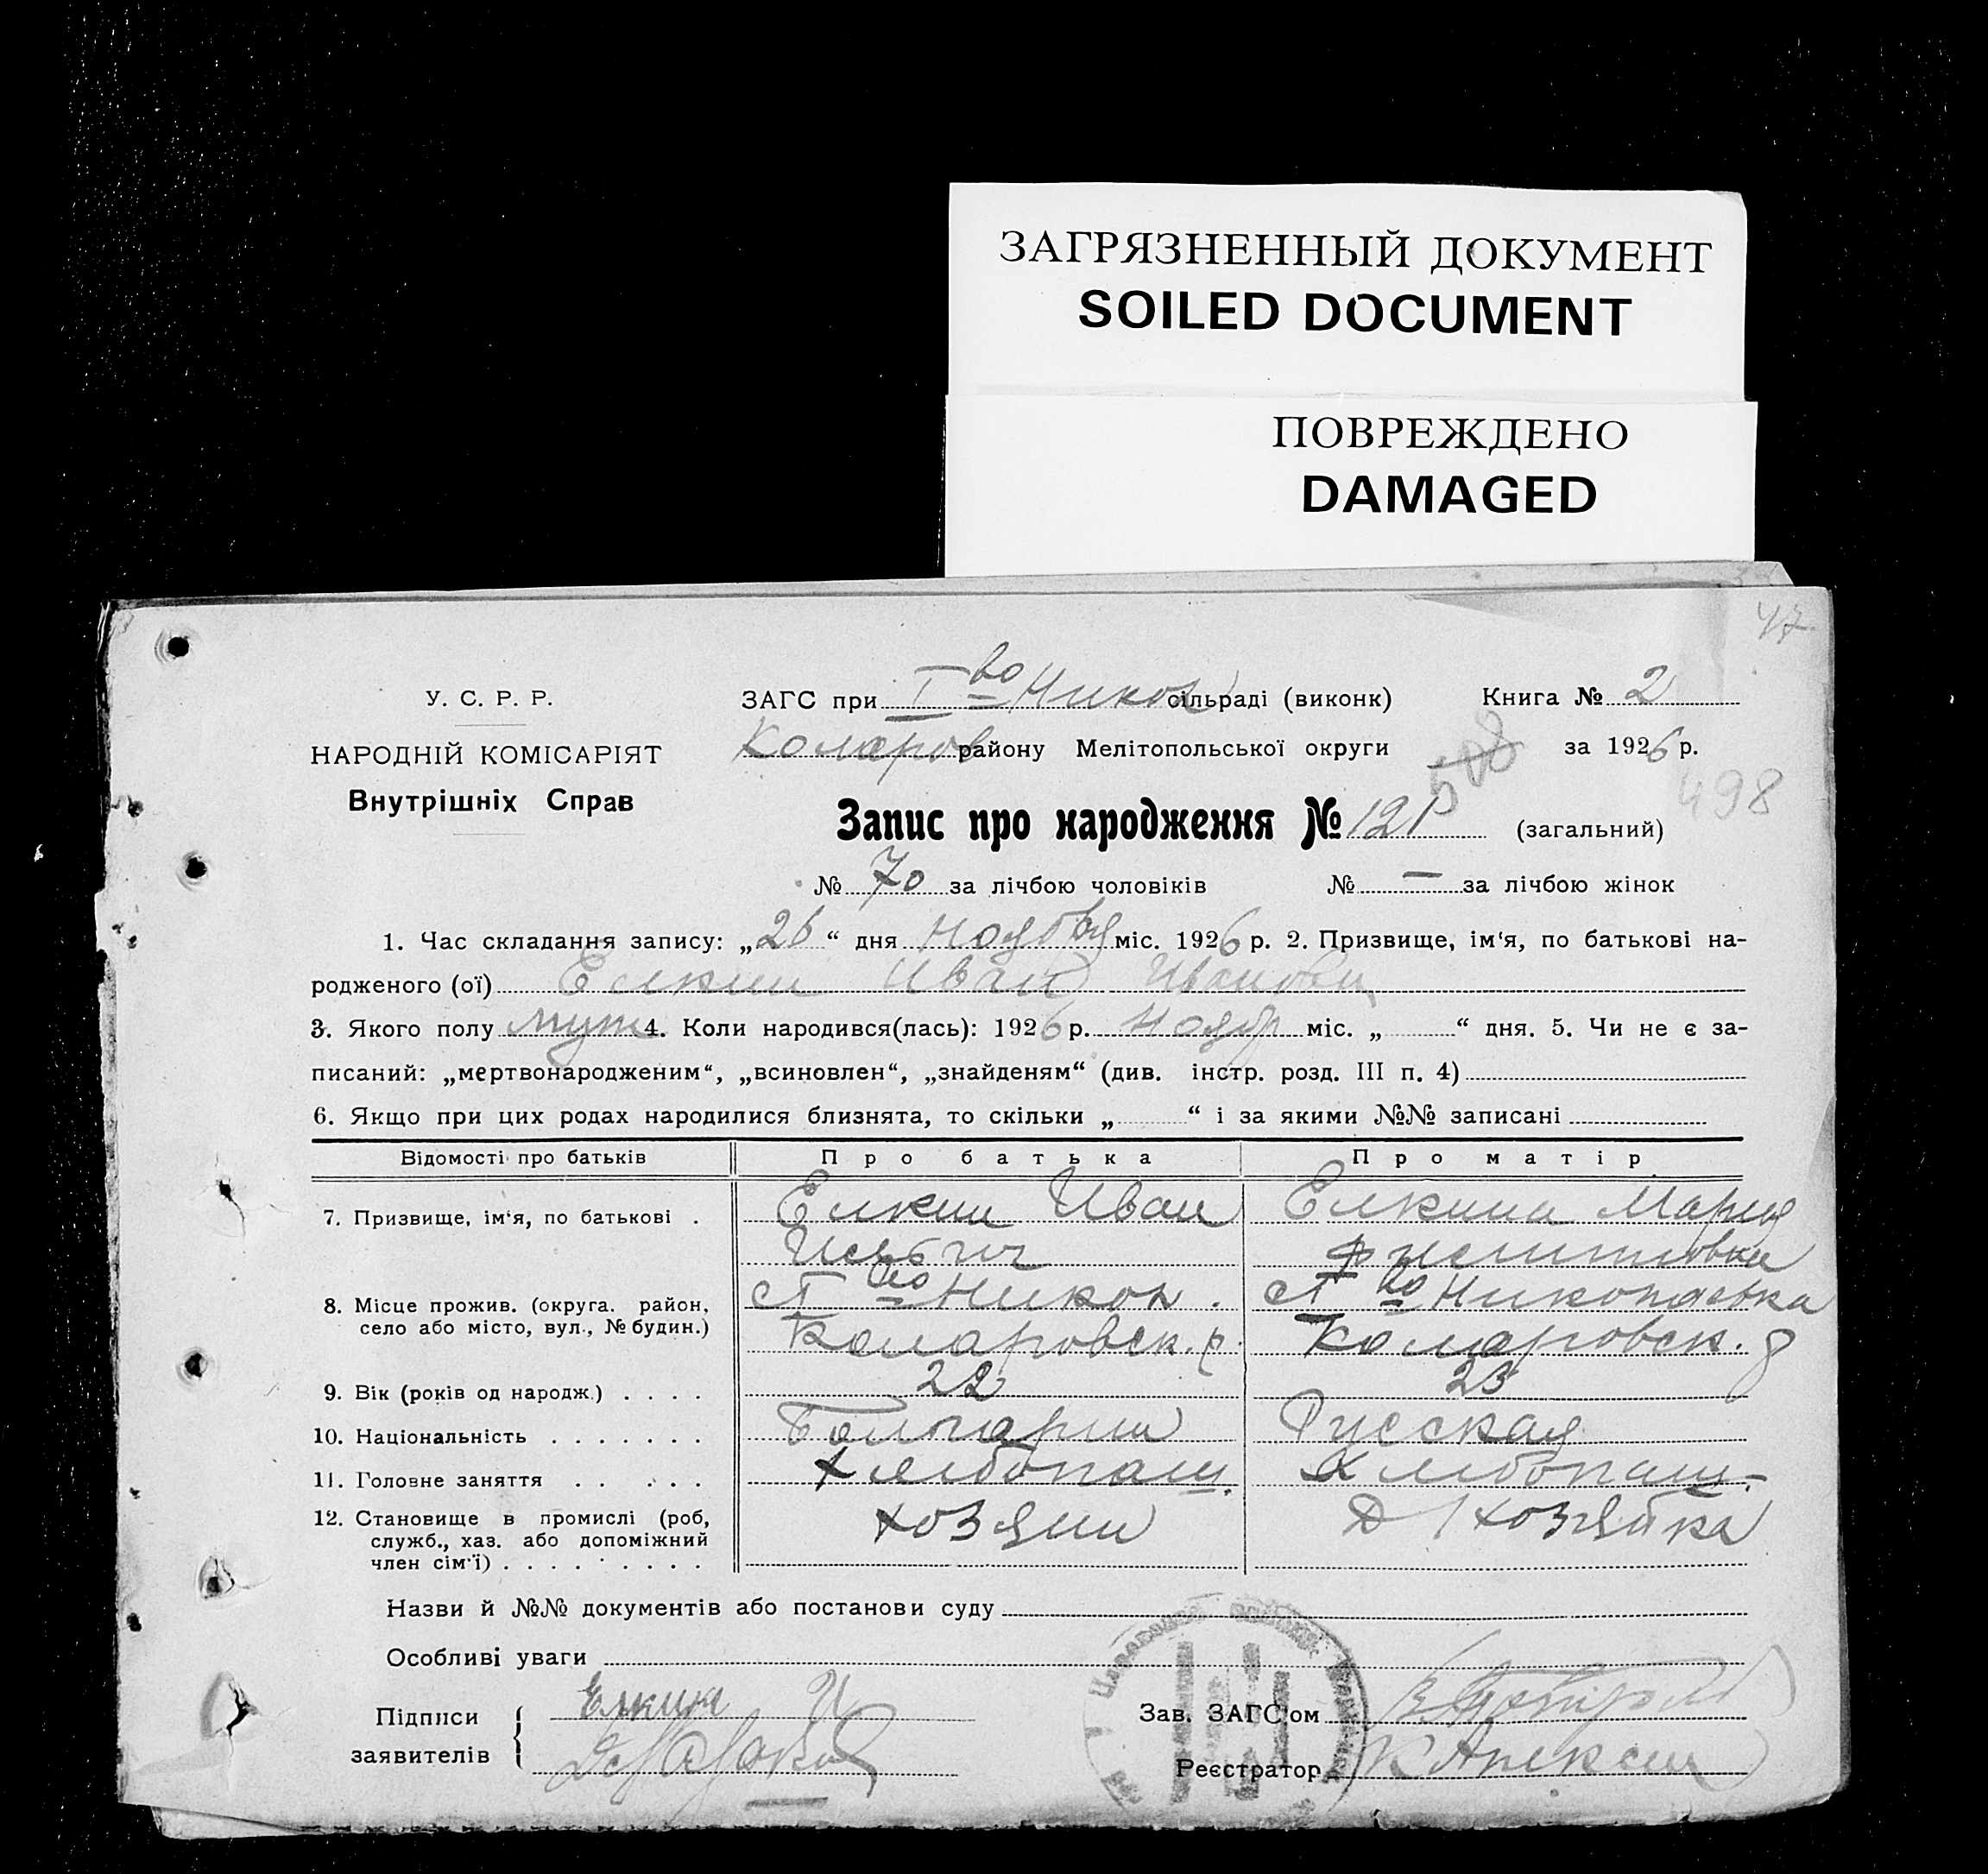 ЗАГРЯЗНЕННЫЙ ДОКУМЕНТ
SOILED DOCUMENT
ПОВРЕЖДЕНО
DAMAGED
47
У. С. Р. Р.
НАРОДНІЙ КОМІСАРІЯТ
Внутрішніх Справ
ЗАГС при I во Никол сільраді (виконк) Книга № 2
Коларов району Мелітопольської округи 508 за 1926 р.
498
Запис про народження № 121 (загальний)
№ 70 за лічбою чоловіків № — за лічбою жінок
1. Час складання запису: „26“ дня Ноября міс. 1926 р. 2. Призвище, ім'я, по батькові на-
родженого (ої) Елкин Иван Иванович
3. Якого полу муж 4. Коли народився(лась): 1926 р. Ноябр міс. „ “ дня. 5. Чи не є за-
писаний: „мертвонародженим“, „всиновлен“, „знайденям“ (див. інстр. розд. III п. 4)
6. Якщо при цих родах народилися близнята, то скільки „ “ і за якими №№ записані
Відомості про батьків Про батька Про матір
7. Призвище, ім'я, по батькові . Елкин Иван Елкина Мария
8. Місце прожив. (округа. район, с I во Никол. с I во Николаевка
село або місто, вул., № будин.) Коларовск. р. Коларовск. р
9. Вік (років од народж.) . . . . 22 23
10. Національність . . . . . . . Болгарин Русская
11. Головне заняття . . . . . . Хлебопаш. Хлебопаш.
12. Становище в промислі (роб, хозяин Д/хозяйка
служб., хаз. або допоміжний
член сім'ї) . . . . . . . . .
Назви й №№ документів або постанови суду
Особливі уваги
Підписи Елкин И
заявителів
Зав. ЗАГС'ом
Реєстратор